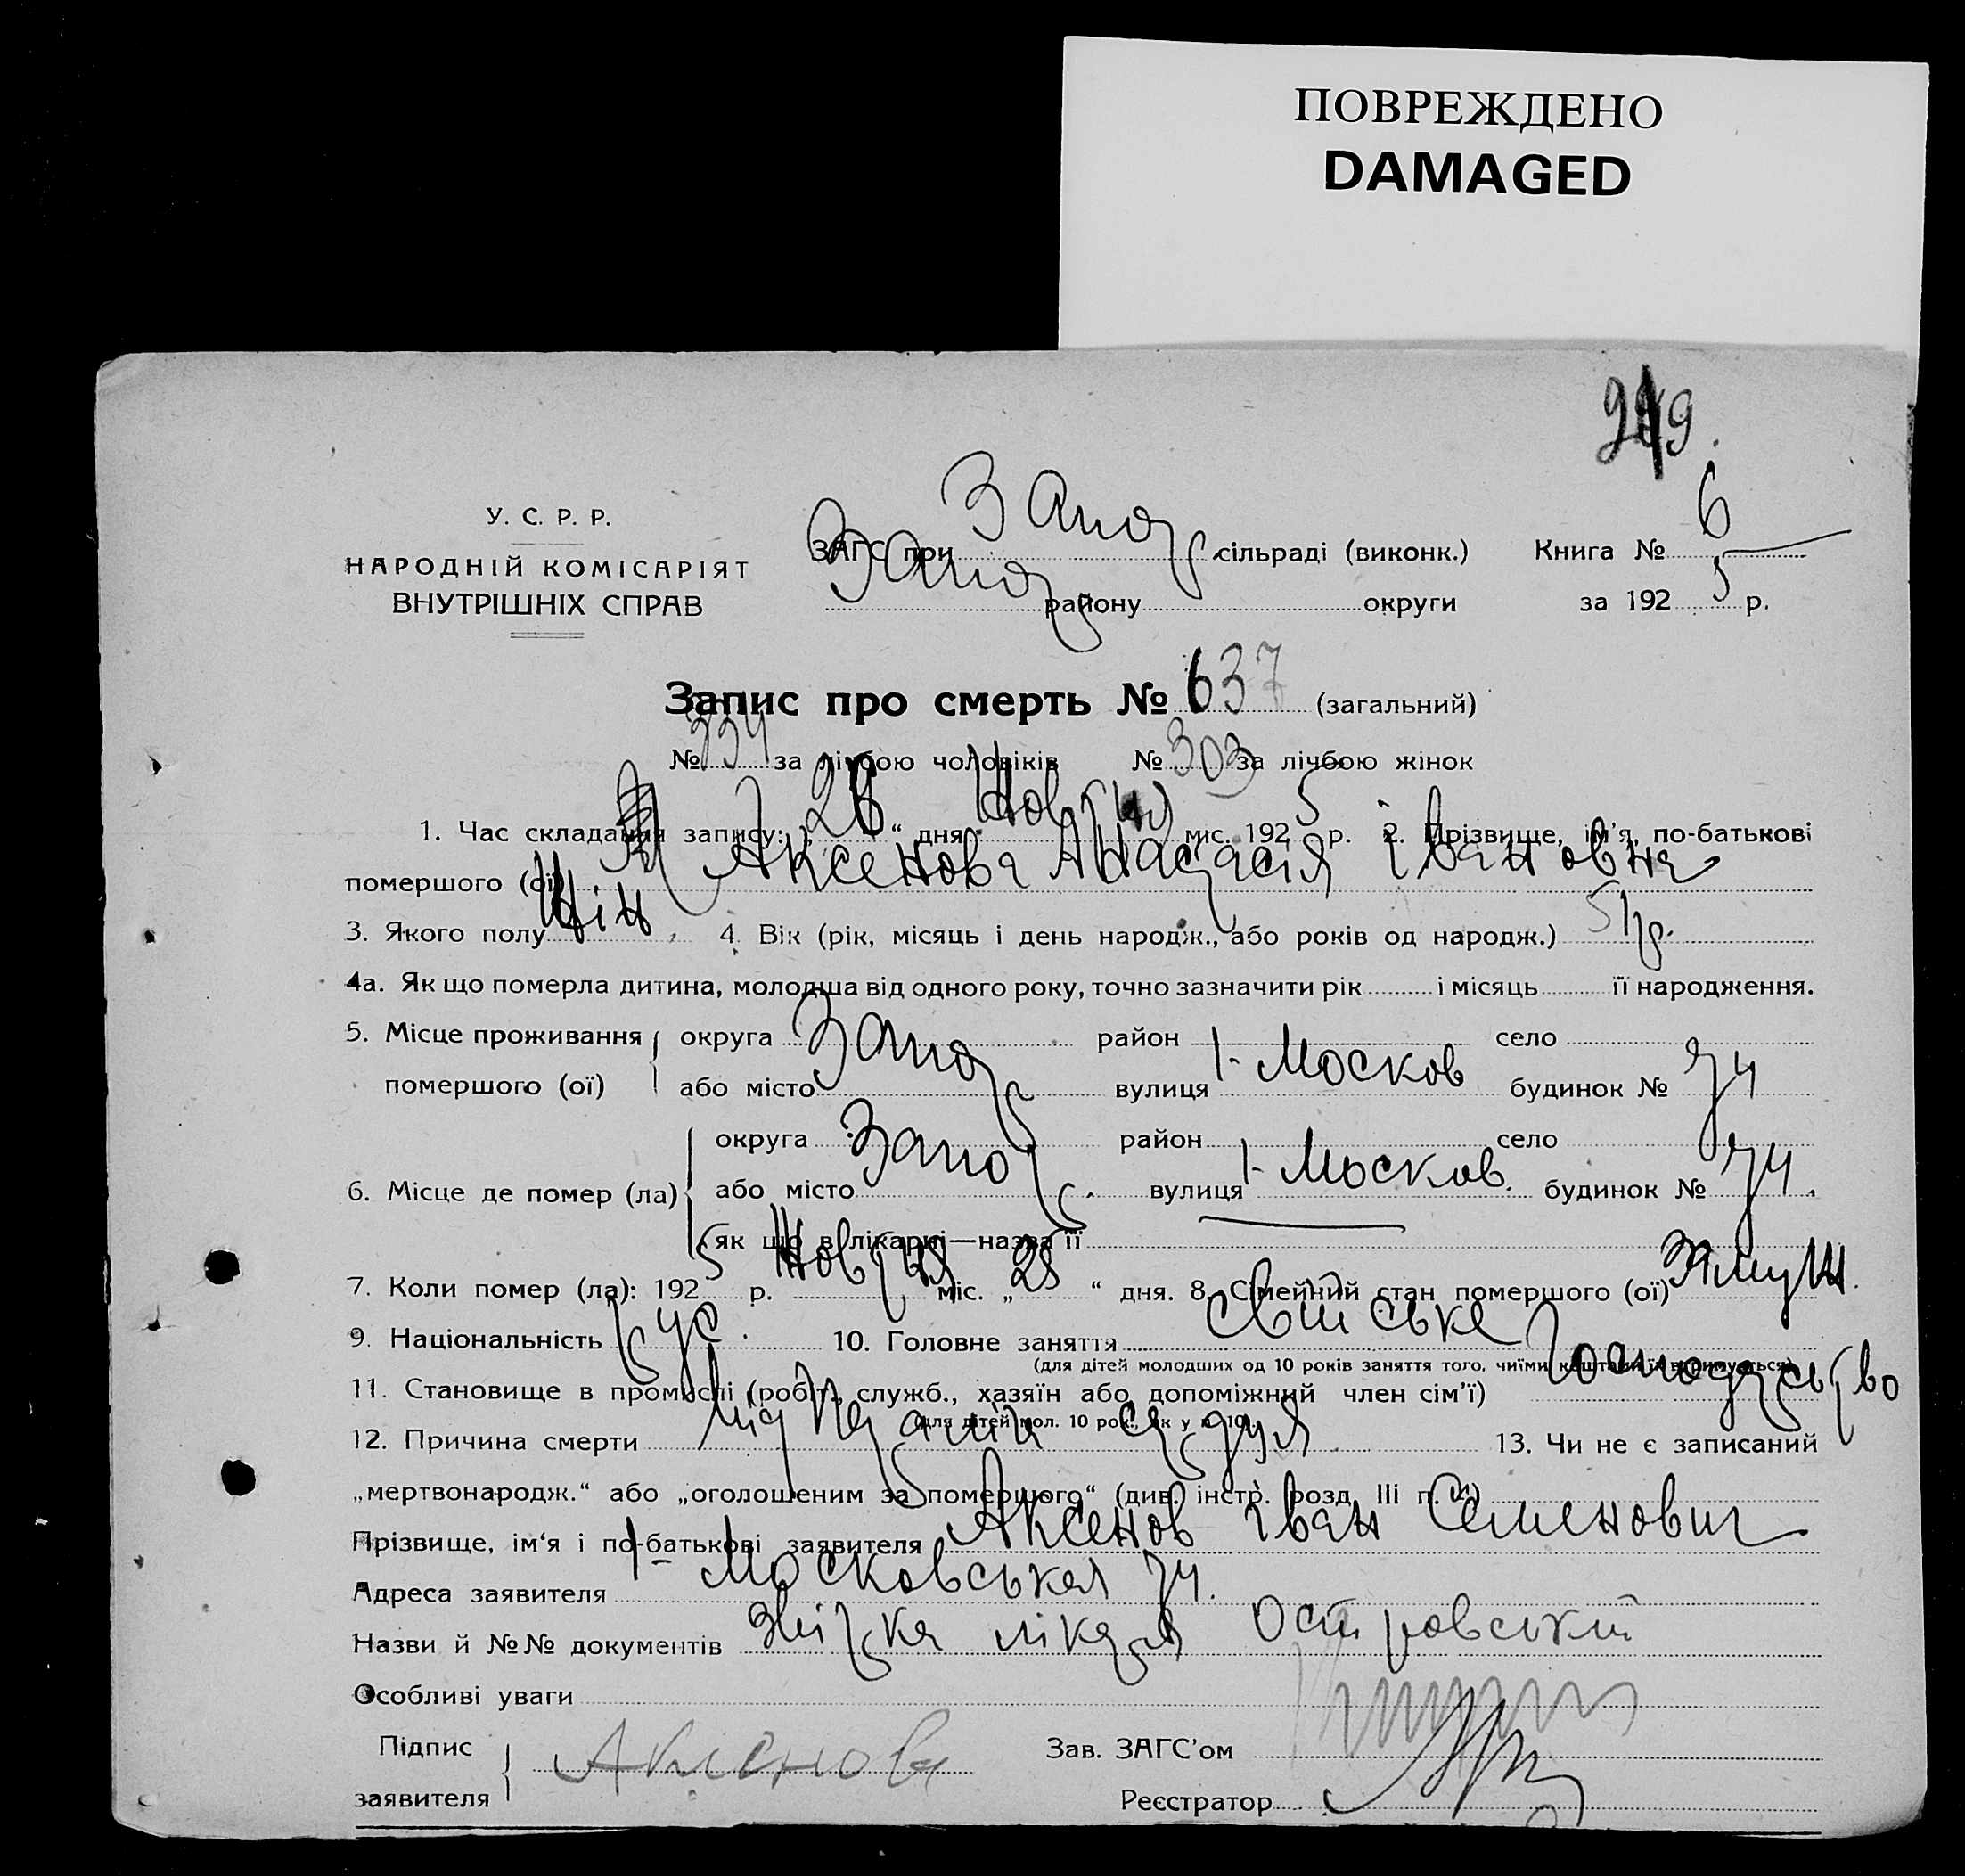 ПОВРЕЖДЕНО
DAMAGED
У. С. Р. Р.
НАРОДНІЙ КОМІСАРІЯТ
ВНУТРІШНІХ СПРАВ
ЗАГС при Запор. сільраді (виконк.) Книга № 6
Запор району округи за 1925 р.
Запис про смерть № 637 (загальний)
№ 334 за лічбою чоловіків № 303 за лічбою жінок
1. Час складання запису: „ “ дня Новбря міс. 1925 р. 2. Прізвище, ім'я, по-батькові
помершого (ої) Аксенова Анастасія Івановна
3. Якого полу Жін 4. Вік (рік, місяць і день народж., або років од народж.) 51 р.
4а. Як що померла дитина, молодша від одного року, точно зазначити рік і місяць її народження.
5. Місце проживання округа Запор район село
помершого (ої) або місто вулиця 1-Москов будинок № 74
округа Запор. район село
6. Місце де помер (ла) або місто вулиця 1-Москов. будинок № 74.
як що в лікарні—назва її
7. Коли помер (ла): 1925 р. Новбря міс. „25“ дня. 8. Сімейний стан помершого (ої) Замуж.
9. Національність рус. 10. Головне заняття господарство
(для дітей молодших од 10 років заняття того, чиїми коштами їх втримується)
11. Становище в промислі (робіт., служб., хазяїн або допоміжний член сім'ї)
(для дітей мол. 10 рок., як у п. 10).
12. Причина смерти параліч сердця 13. Чи не є записаний
„мертвонародж.“ або „оголошеним за помершого“ (див. інстр. розд. III п. 4)
Прізвище, ім'я і по-батькові заявителя Аксенов Іван Семенович
Адреса заявителя 1-Московська 74.
Назви й №№ документів лікаря Островський
Особливі уваги
Підпис Зав. ЗАГС'ом
заявителя Аксенов Реєстратор